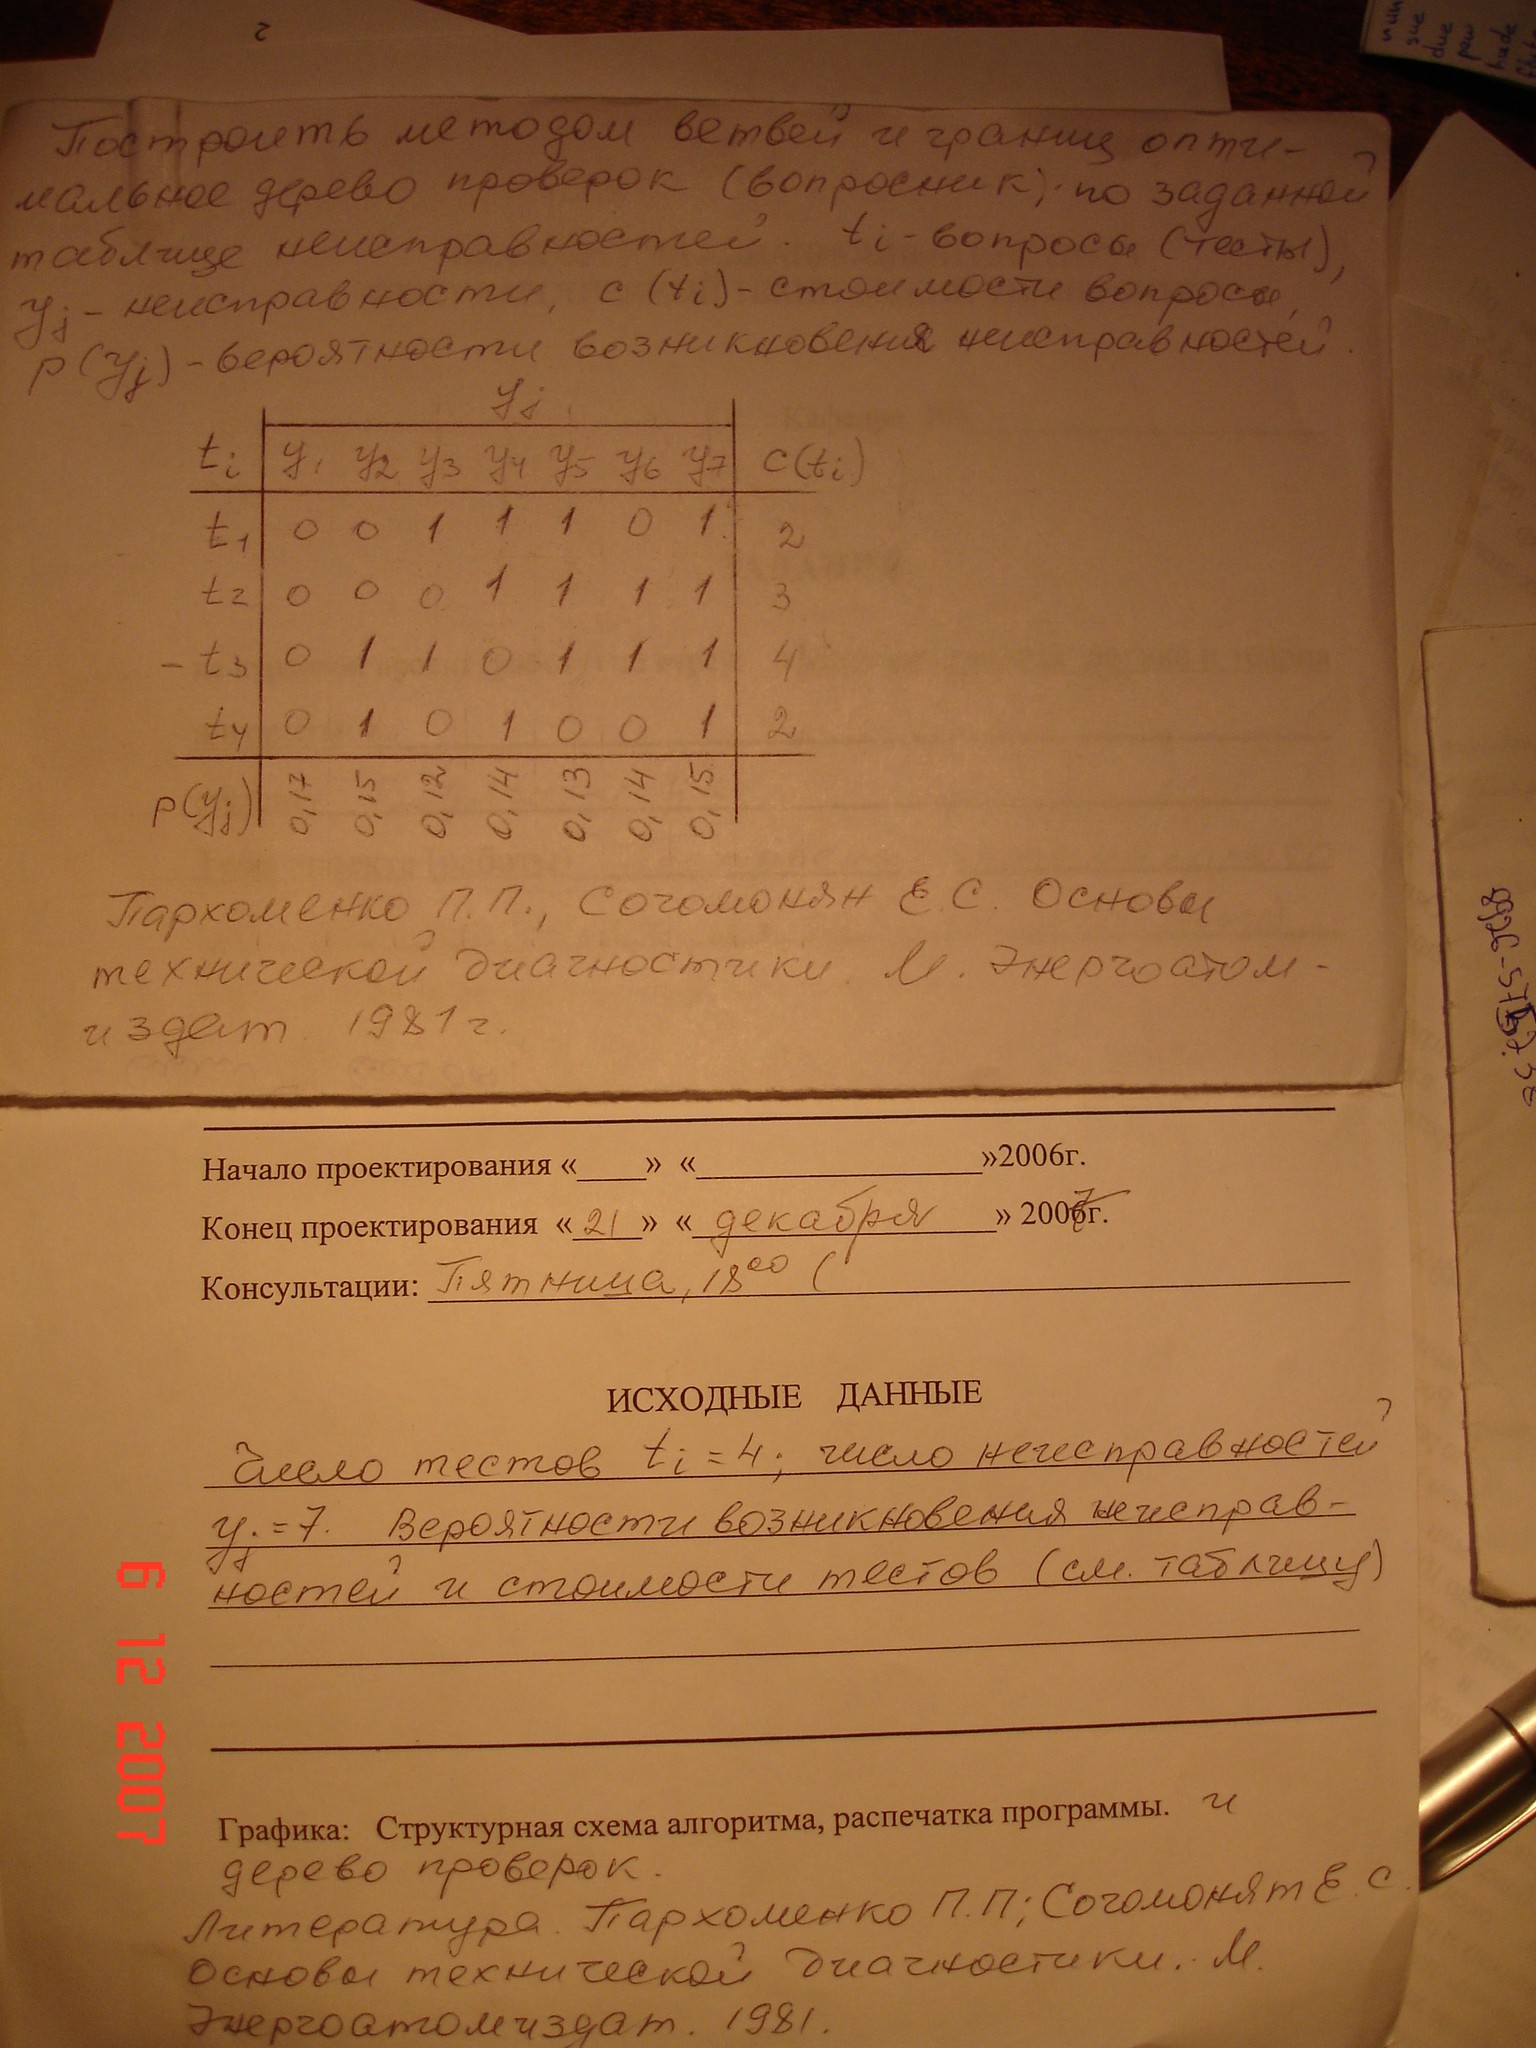 Построить методом ветвей и границ опти-
мальное дерево проверок (вопросник) по заданной
таблице неисправностей. ti - вопросы (тесты),
yj - неисправности, c(ti) - стоимости вопросов,
P(yj) - вероятности возникновения неисправностей.
yj
ti y1 y2 y3 y4 y5 y6 y7 c(ti)
t1 0 0 1 1 1 0 1 2
t2 0 0 0 1 1 1 1 3
- t3 0 1 1 0 1 1 1 4
t4 0 1 0 1 0 0 1 2
P(yj) 0,17 0,15 0,12 0,14 0,13 0,14 0,15
Пархоменко П.П., Согомонян Е.С. Основы
технической диагностики. М. Энергоатом-
издат. 1981г.
Начало проектирования «____» «________________»2006г.
Конец проектирования «21» «декабря» 2007г.
Консультации: Пятница, 18⁰⁰ (
ИСХОДНЫЕ ДАННЫЕ
Число тестов ti = 4; число неисправностей
yj = 7. Вероятности возникновения неисправ-
ностей и стоимости тестов (см. таблицу)
6 12 2007
Графика: Структурная схема алгоритма, распечатка программы. и
дерево проверок.
Литература. Пархоменко П.П; Согомонят Е.С.
Основы технической диагностики. М.
Энергоатомиздат. 1981.